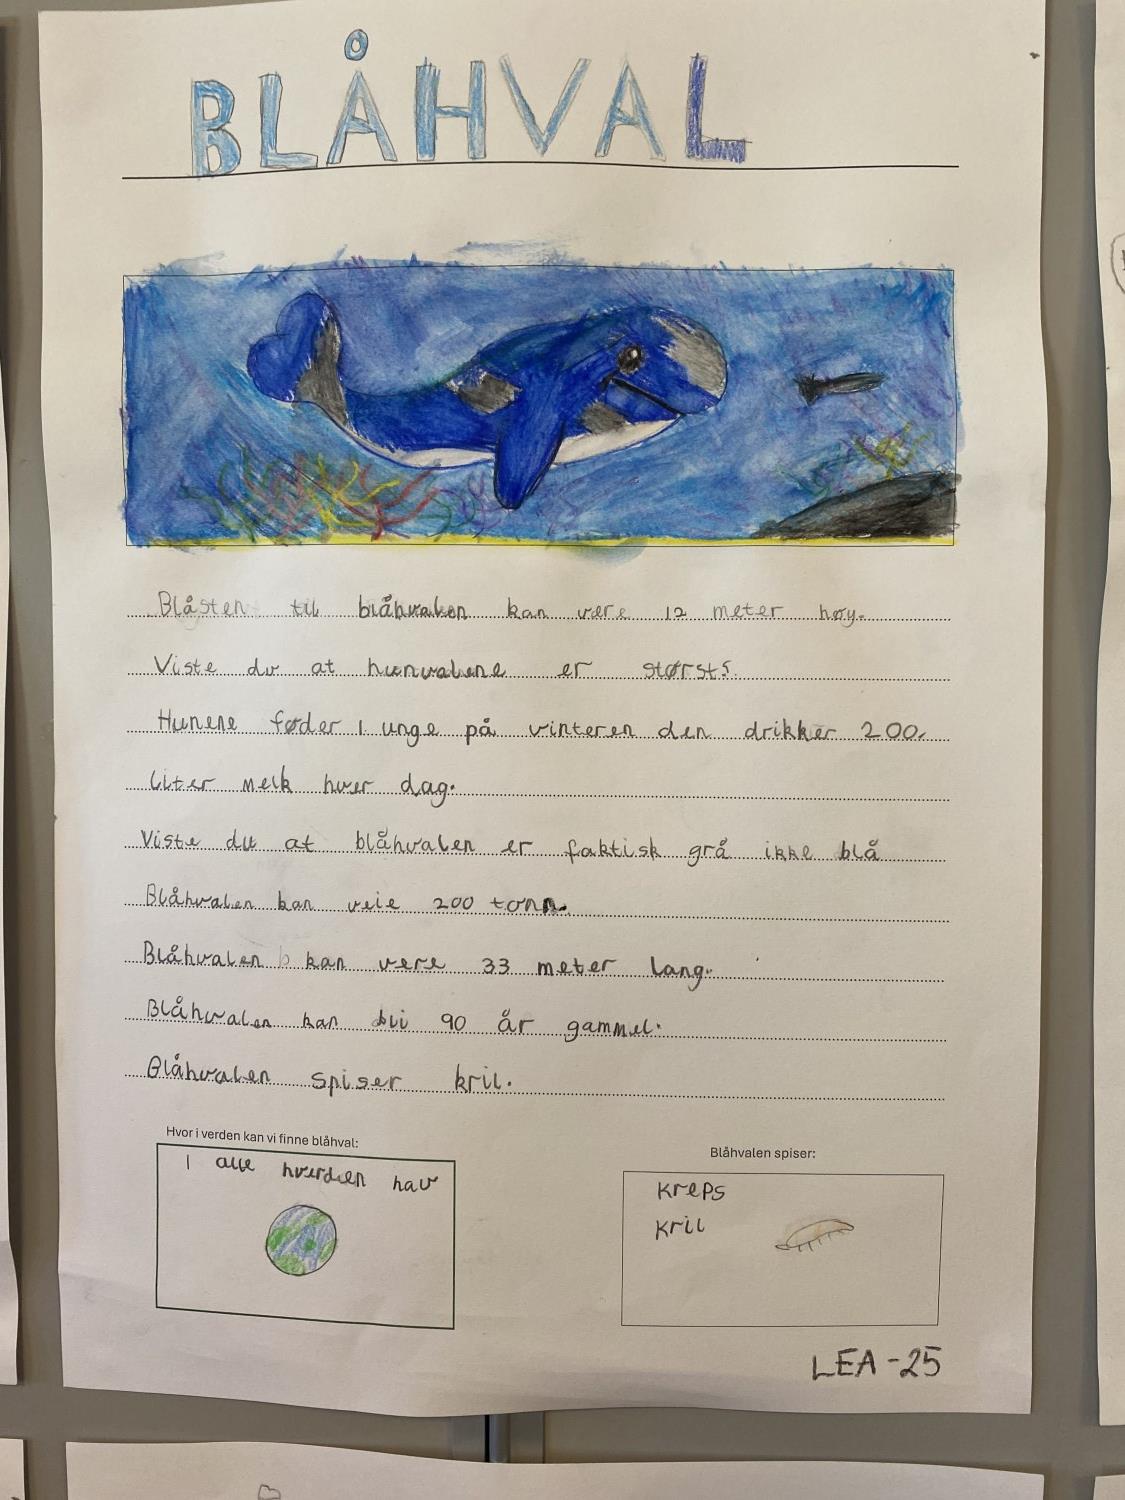 BLÅHVAL
Blåsten til blåhvalen kan være 12 meter høy.
Viste du at hunvalene er størst?
Hunene føder 1 unge på vinteren den drikker 200.
liter melk hver dag.
Viste du at blåhvalen er faktisk grå ikke blå
Blåhvalen kan veie 200 tonn.
Blåhvalen b kan vere 33 meter lang.
Blåhvalen kan bli 90 år gammel.
Blåhvalen spiser kril.
Hvor i verden kan vi finne blåhval:
I alle hverdien hav
Blåhvalen spiser:
kreps
kril
LEA -25